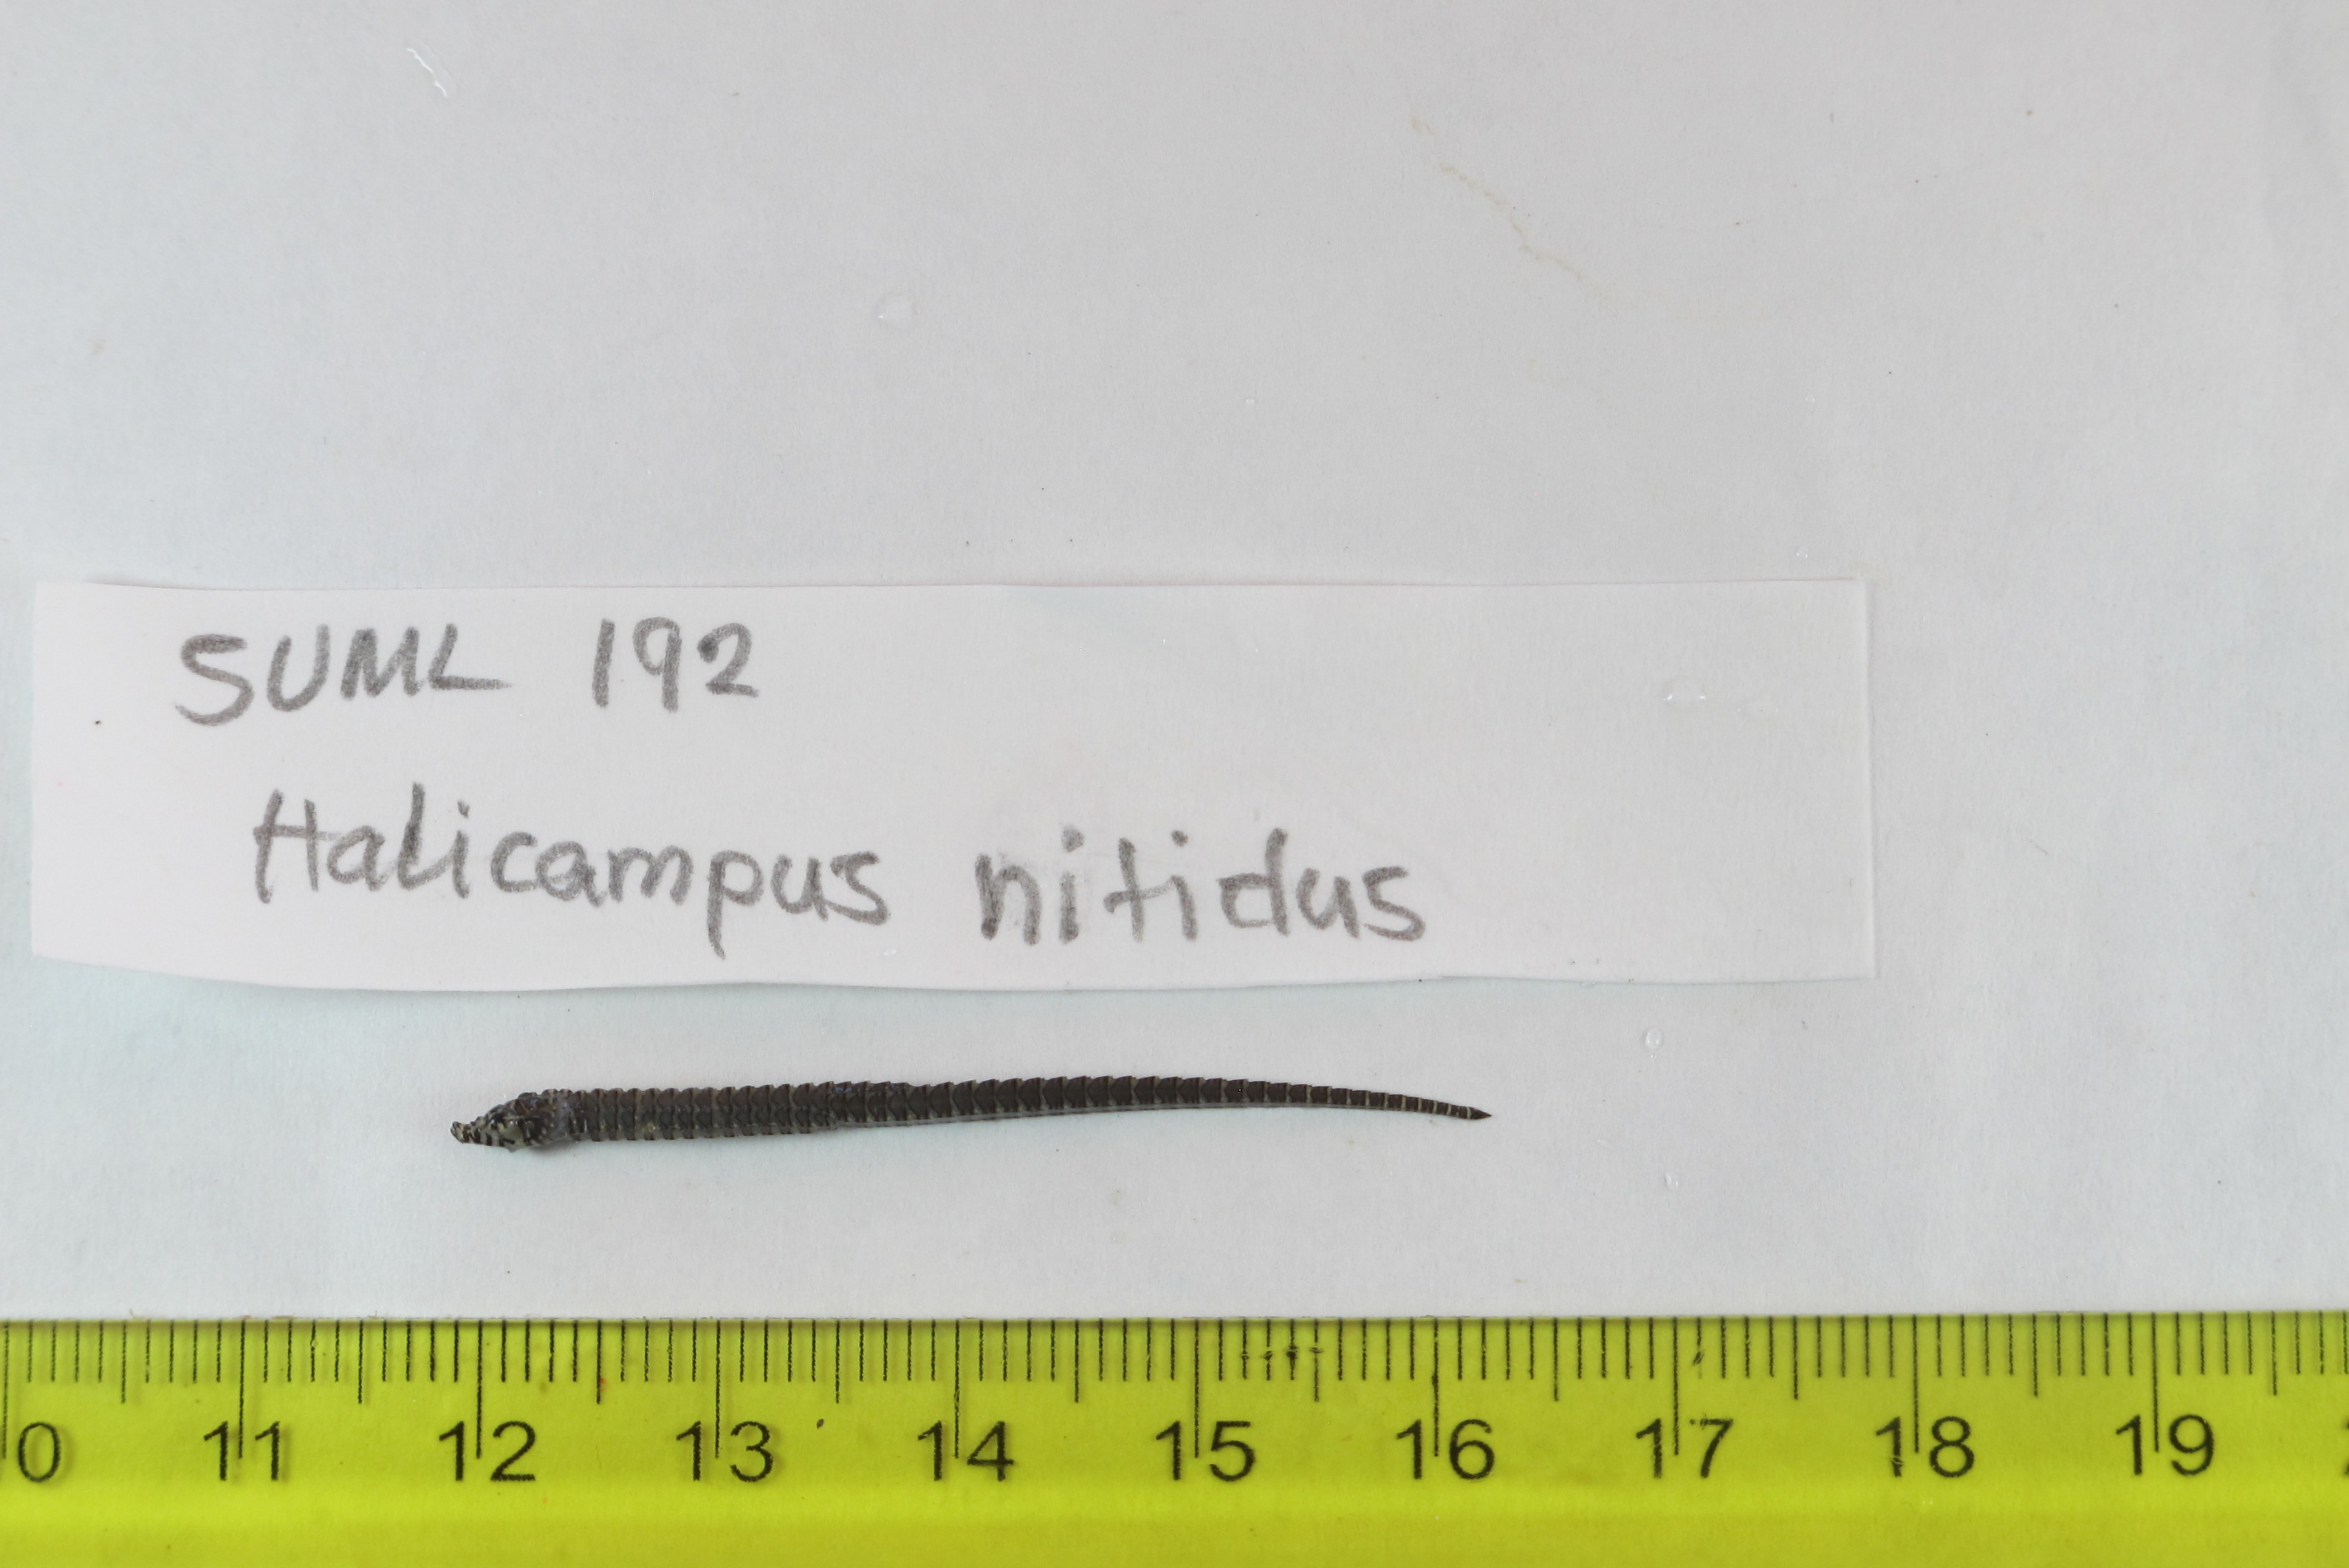 SUML 192
Halicampus nitidus
0 11 12 13 14 15 16 17 18 19